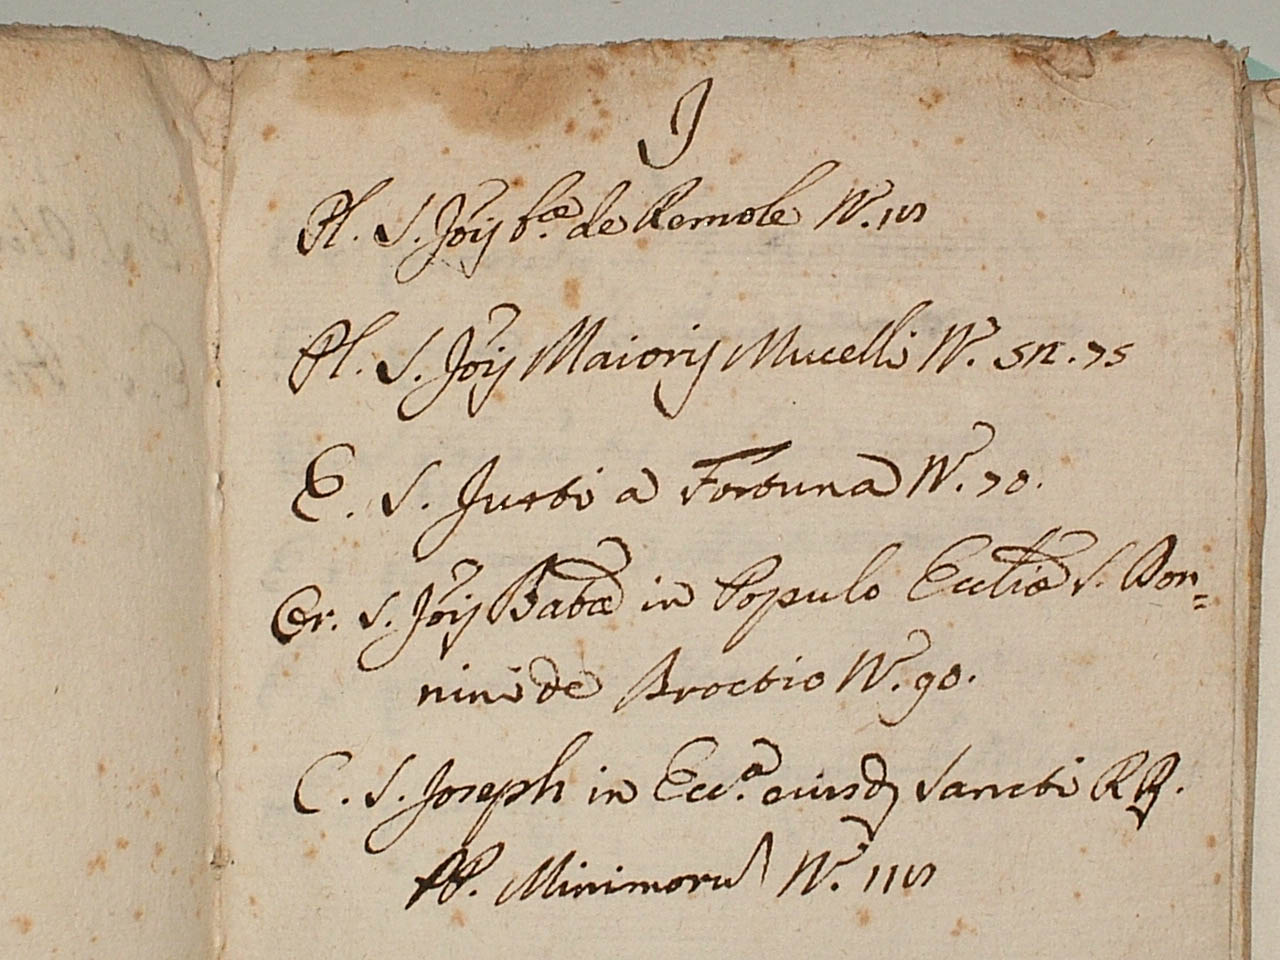 J
Pl. S. Jõis Bæ. de Remole N. 
Pl. S. Jõis Maioris Mucelli N. 52. 75
E. S. Justi a Fortuna N. 70.
Or. S. Jõis Babæ in Populo Ecclíæ S. Don=
nini de Broctio N. 90.
C. S. Joseph in Ecc.ª eiusd Sancti RR.
PP. Minimorũ N.